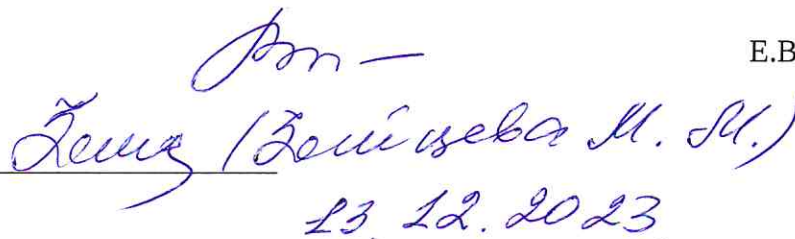 Е.В
(Зайцева М. М.)
13.12.2023